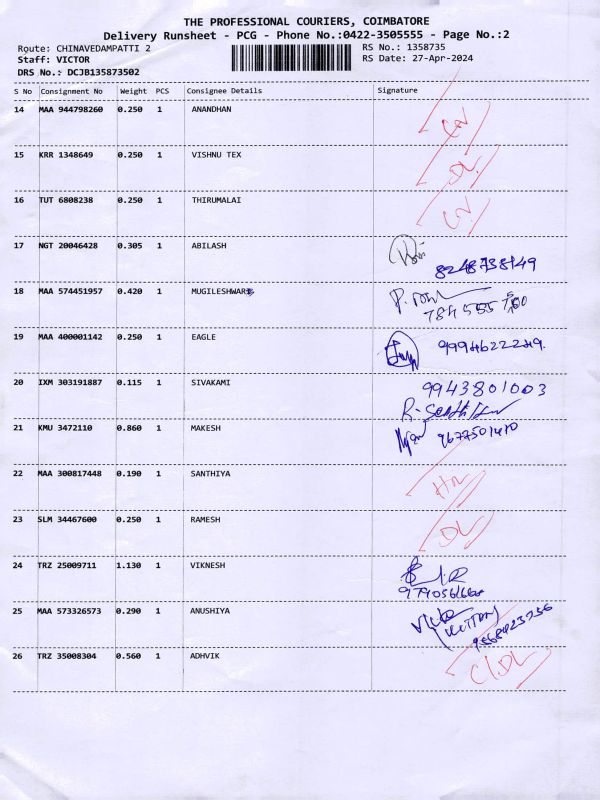 THE PROFESSIONAL COURIERS, COIMBATORE
Delivery Runsheet - PCG - Phone No.:0422-3505555 - Page No.:2
Route: CHINAVEDAMPATTI 2 RS No.: 1358735
Staff: VICTOR RS Date: 27-Apr-2024
DRS No.: DCJB135873502
S No Consignment No Weight PCS Consignee Details Signature
14 MAA 944798260 0.250 1 ANANDHAN
15 KRR 1348649 0.250 1 VISHNU TEX DL
16 TUT 6808238 0.250 1 THIRUMALAI
17 NGT 20046428 0.305 1 ABILASH
8248738149
18 MAA 574451957 0.420 1 MUGILESHWARI
19 MAA 400001142 0.250 1 EAGLE 9994622249.
20 IXM 303191887 0.115 1 SIVAKAMI 9943801003
21 KMU 3472110 0.860 1 MAKESH 9677501410
22 MAA 300817448 0.190 1 SANTHIYA
23 SLM 34467600 0.250 1 RAMESH DL
24 TRZ 25009711 1.130 1 VIKNESH
25 MAA 573326573 0.290 1 ANUSHIYA
26 TRZ 35008304 0.560 1 ADHVIK C/DL